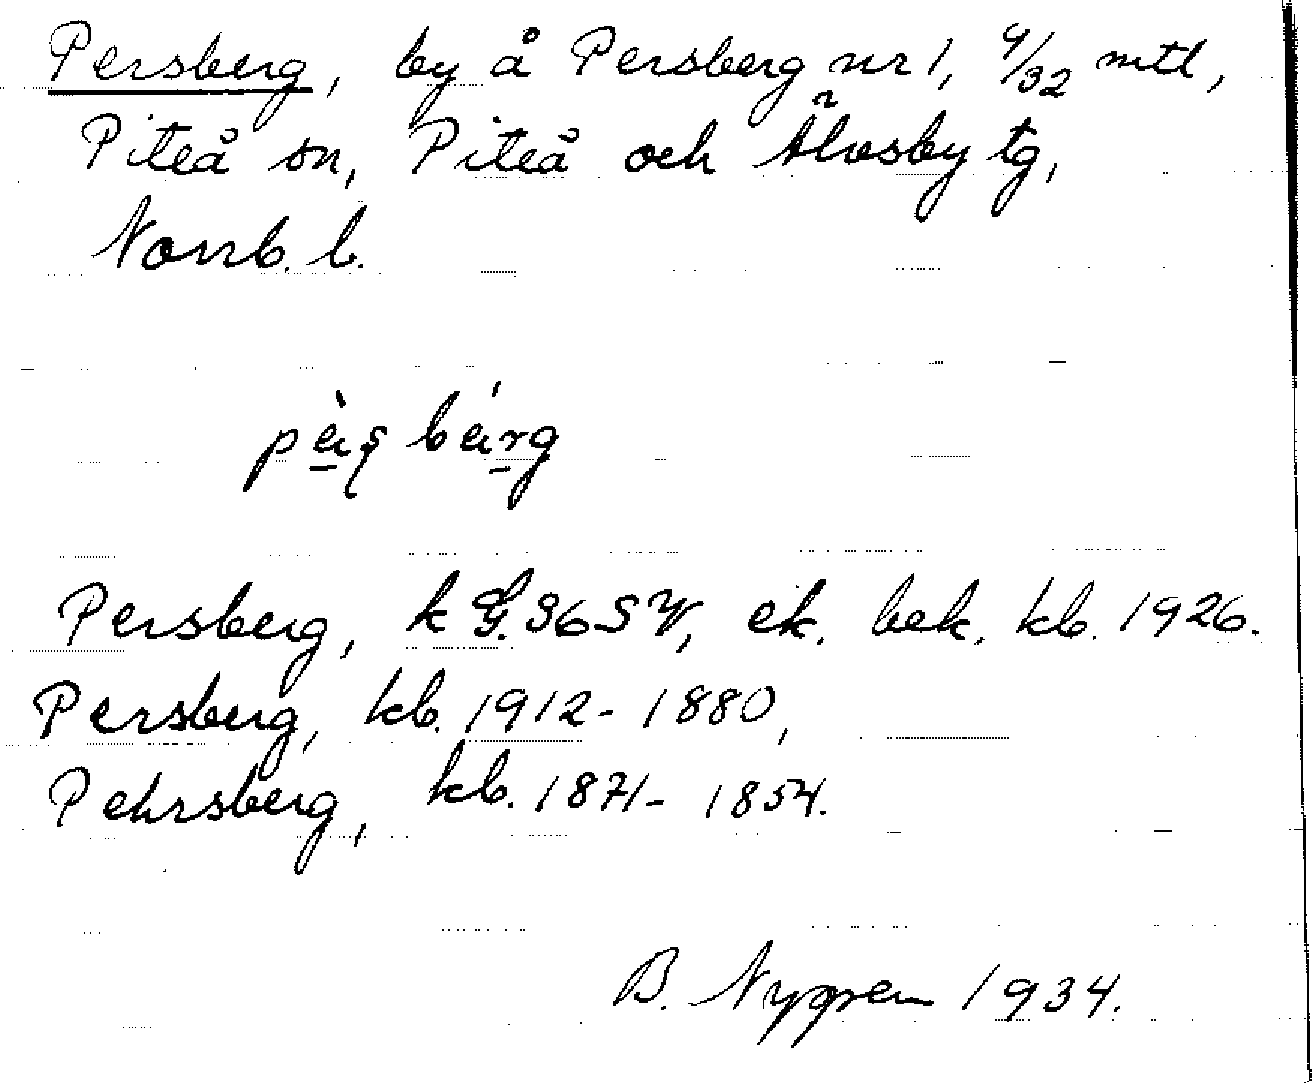 Persberg, by å Persberg nr 1, 9/32 mtl,
Piteå sn, Piteå och Älvsby tg,
Norrb. l.
Persberg, k G. 36 S V, ek. bek. kb. 1926.
Persberg, kb. 1912-1880,
Pehrsberg, kb. 1871-1854.
B. Nygren 1934.